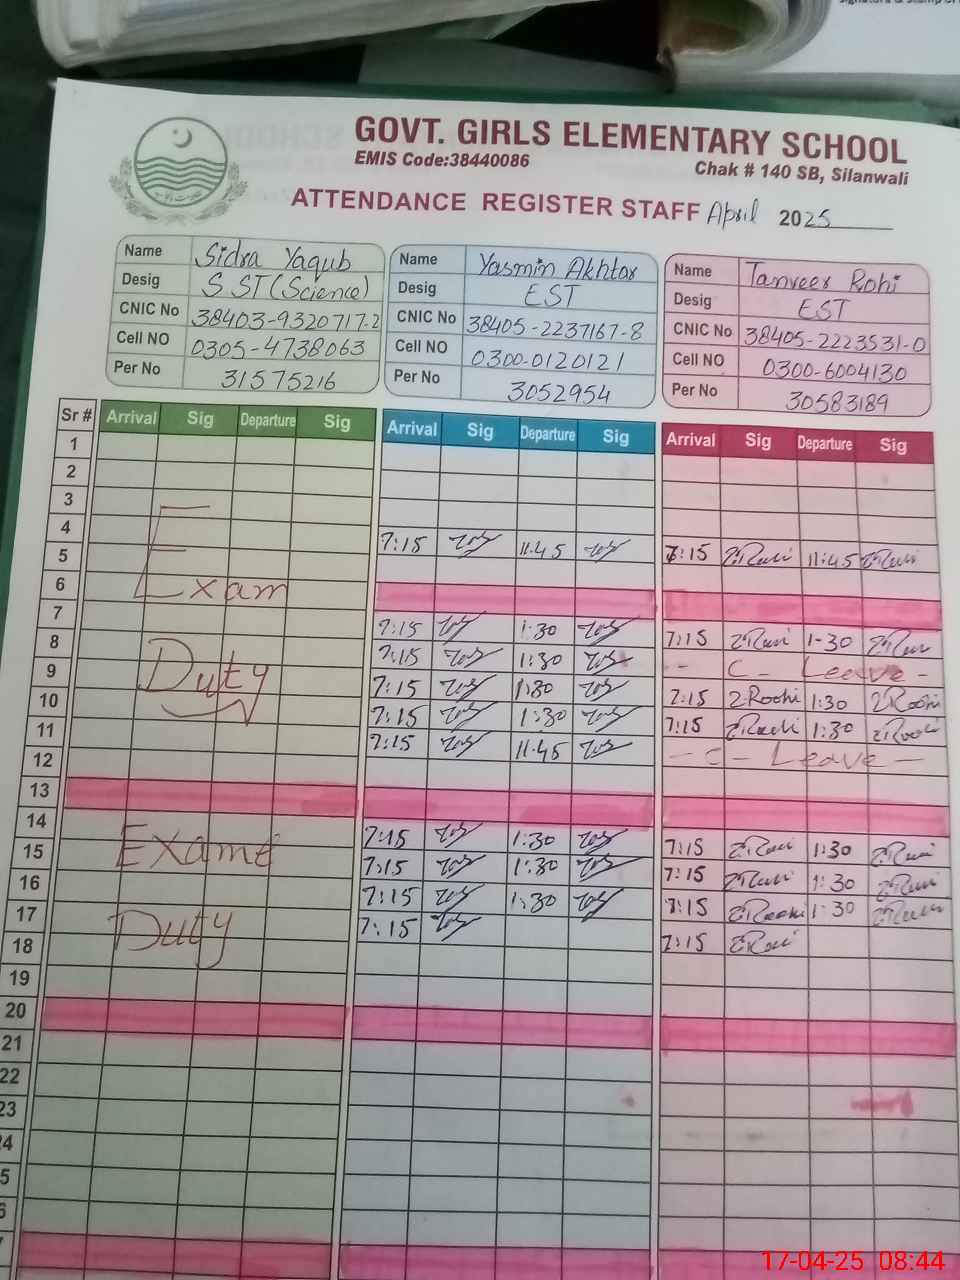 GOVT. GIRLS ELEMENTARY SCHOOL
EMIS Code:38440086 Chak # 140 SB, Silanwali
ATTENDANCE REGISTER STAFF April 2025
Name Sidra Yaqub Name Yasmin Akhtar Name Tanveer Rohi
Desig S ST (Science) Desig EST Desig EST
CNIC No 38403-9320717-2 CNIC No 38405-2237167-8 CNIC No 38405-2223531-0
Cell NO 0305-4738063 Cell NO 0300-0120121 Cell NO 0300-6004130
Per No 31575216 Per No 3052954 Per No 30583189
Sr # Arrival Sig Departure Sig Arrival Sig Departure Sig Arrival Sig Departure Sig
1
2
3
4
5 7:15 11:45 7:15 11:45
6 Exam
7
8 7:15 1:30 7:15 1-30
9 Duty 7:15 1:30 - C - Leave -
10 7:15 1:30 7:15 Z.Roohi 1:30 Z.Roohi
11 7:15 1:30 7:15 1:30
12 7:15 11:45 - C - Leave -
13
14
15 Exame 7:15 1:30 7:15 1:30
16 7:15 1:30 7:15 1:30
17 7:15 1:30 7:15 1:30
18 Duty 7:15 7:15
19
20
21
22
23
24
5
6
7
17-04-25 08:44